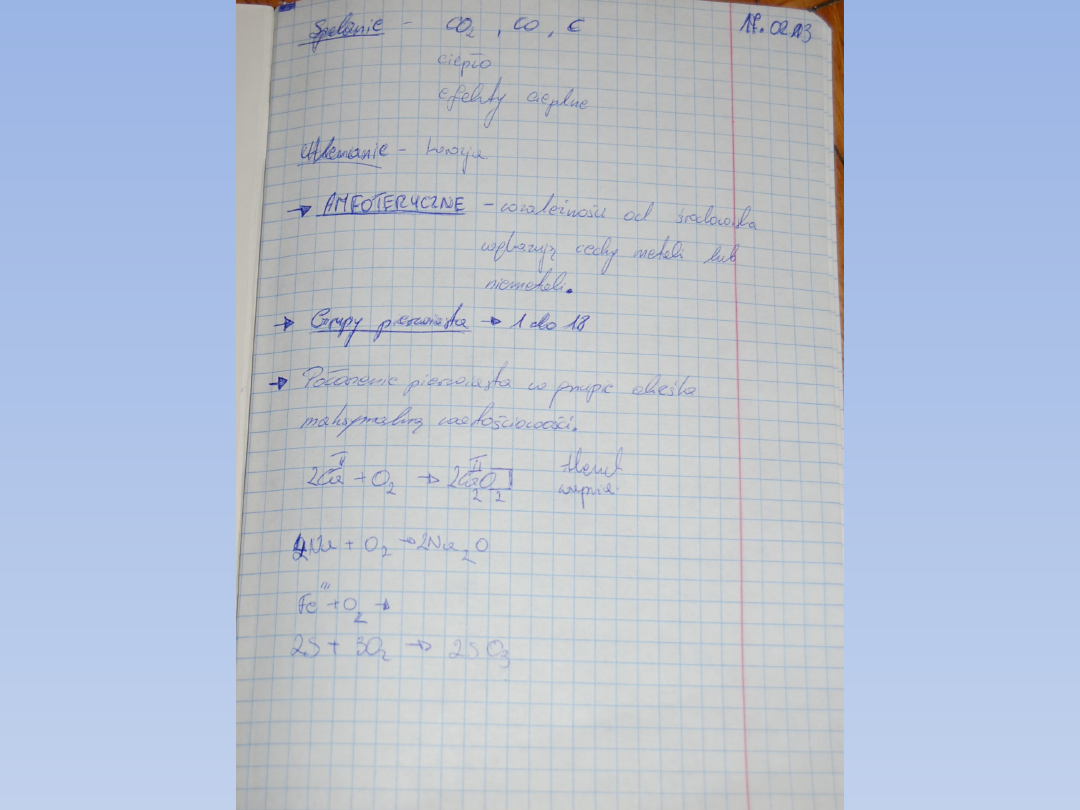 Spalanie - CO₂, CO, C 17.02.13
ciepło
efekty cieplne
Utlenianie - korozja
→ AMFOTERYCZNE - wzależności od środowiska
wykazują cechy metali lub
niemetali.
→ Grupy pierwiastka → 1 do 18
→ Położenie pierwiastka w grupie określa
maksymalną wartościowość.
2Ca^II + O₂ → 2Ca^II₂O₂ tlenek
wapnia
4Na + O₂ → 2Na₂O
Fe^III + O₂ →
2S + 3O₂ → 2SO₃